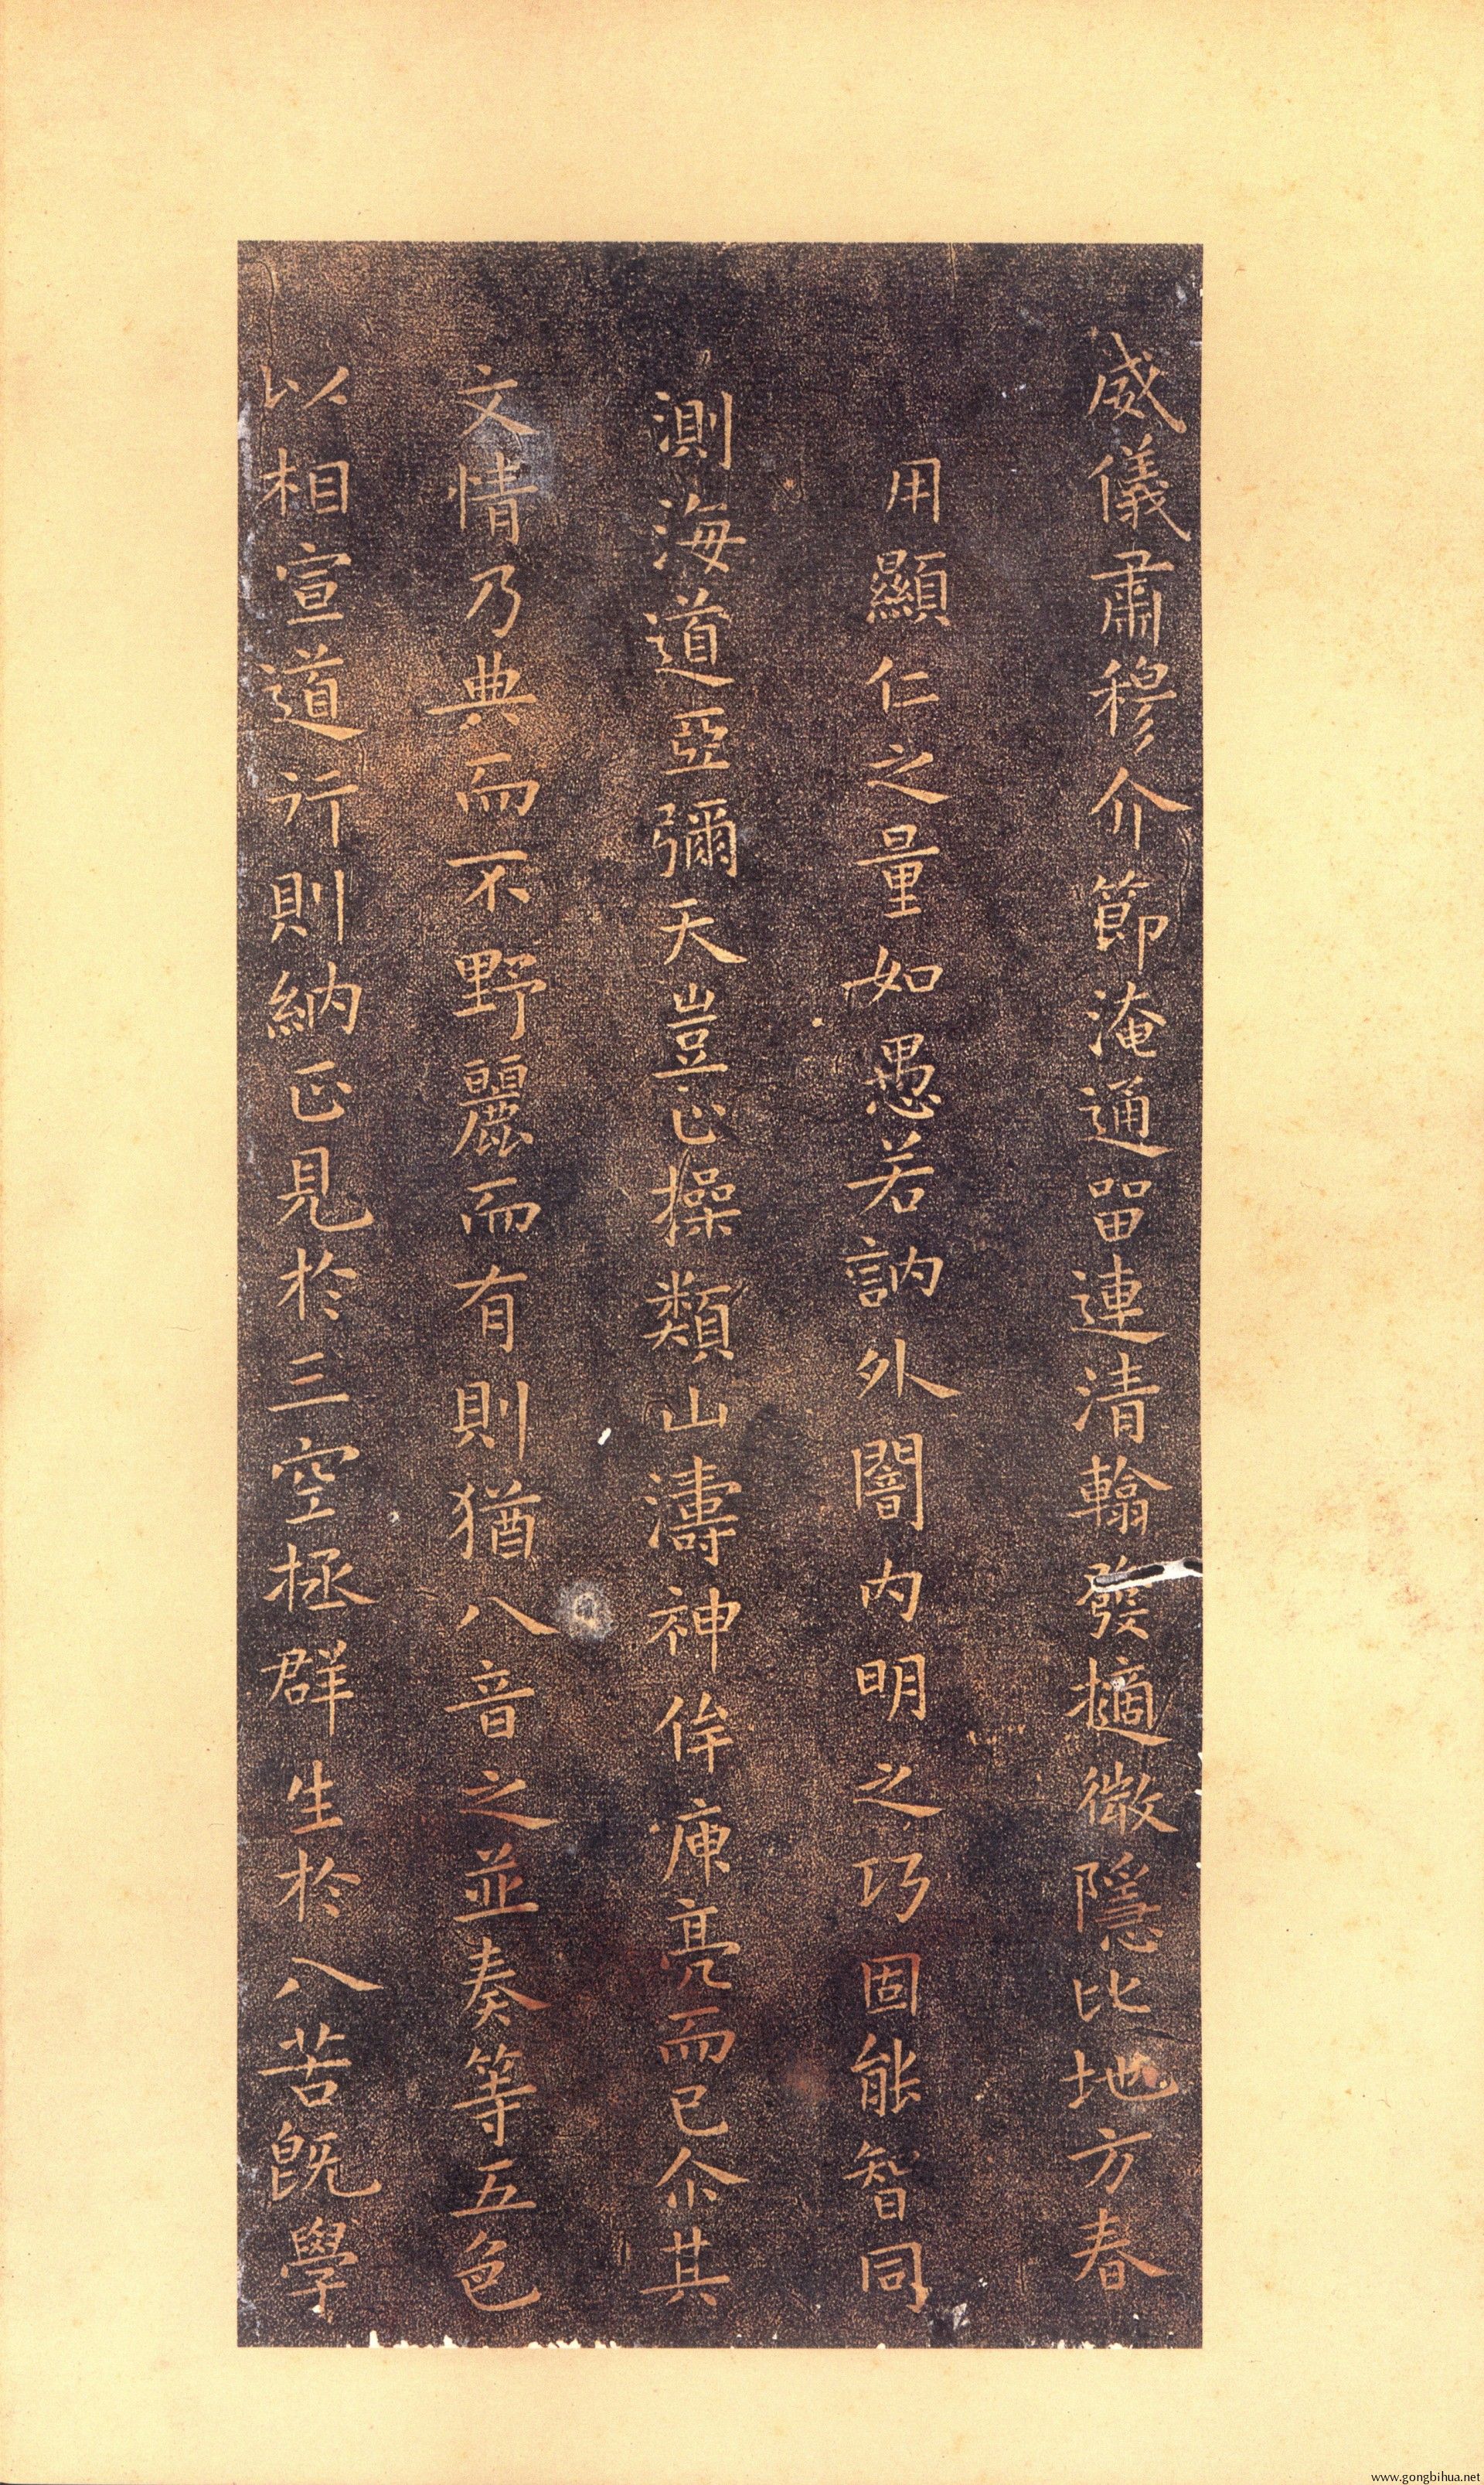 威儀肅穆介節淹通留連清翰發擿微隱比地方春
用顯仁之量如愚若訥外闇内明之巧固能智同
測海道亞彌天豈止操類山濤神侔庾亮而已尒其
文情乃典而不野麗而有則猶八音之並奏等五色
以相宣道行則納正見於三空拯群生於八苦既學
www.gongbihua.net